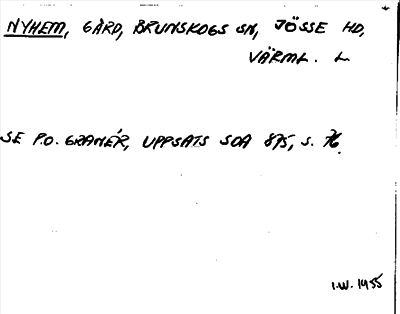 NYHEM, GÅRD, BRUNSKOGS SN, JÖSSE HD,
VÄRML. L
SE P.O. GRANÉR, UPPSATS SOA 875, S. 76.
I.W. 1955